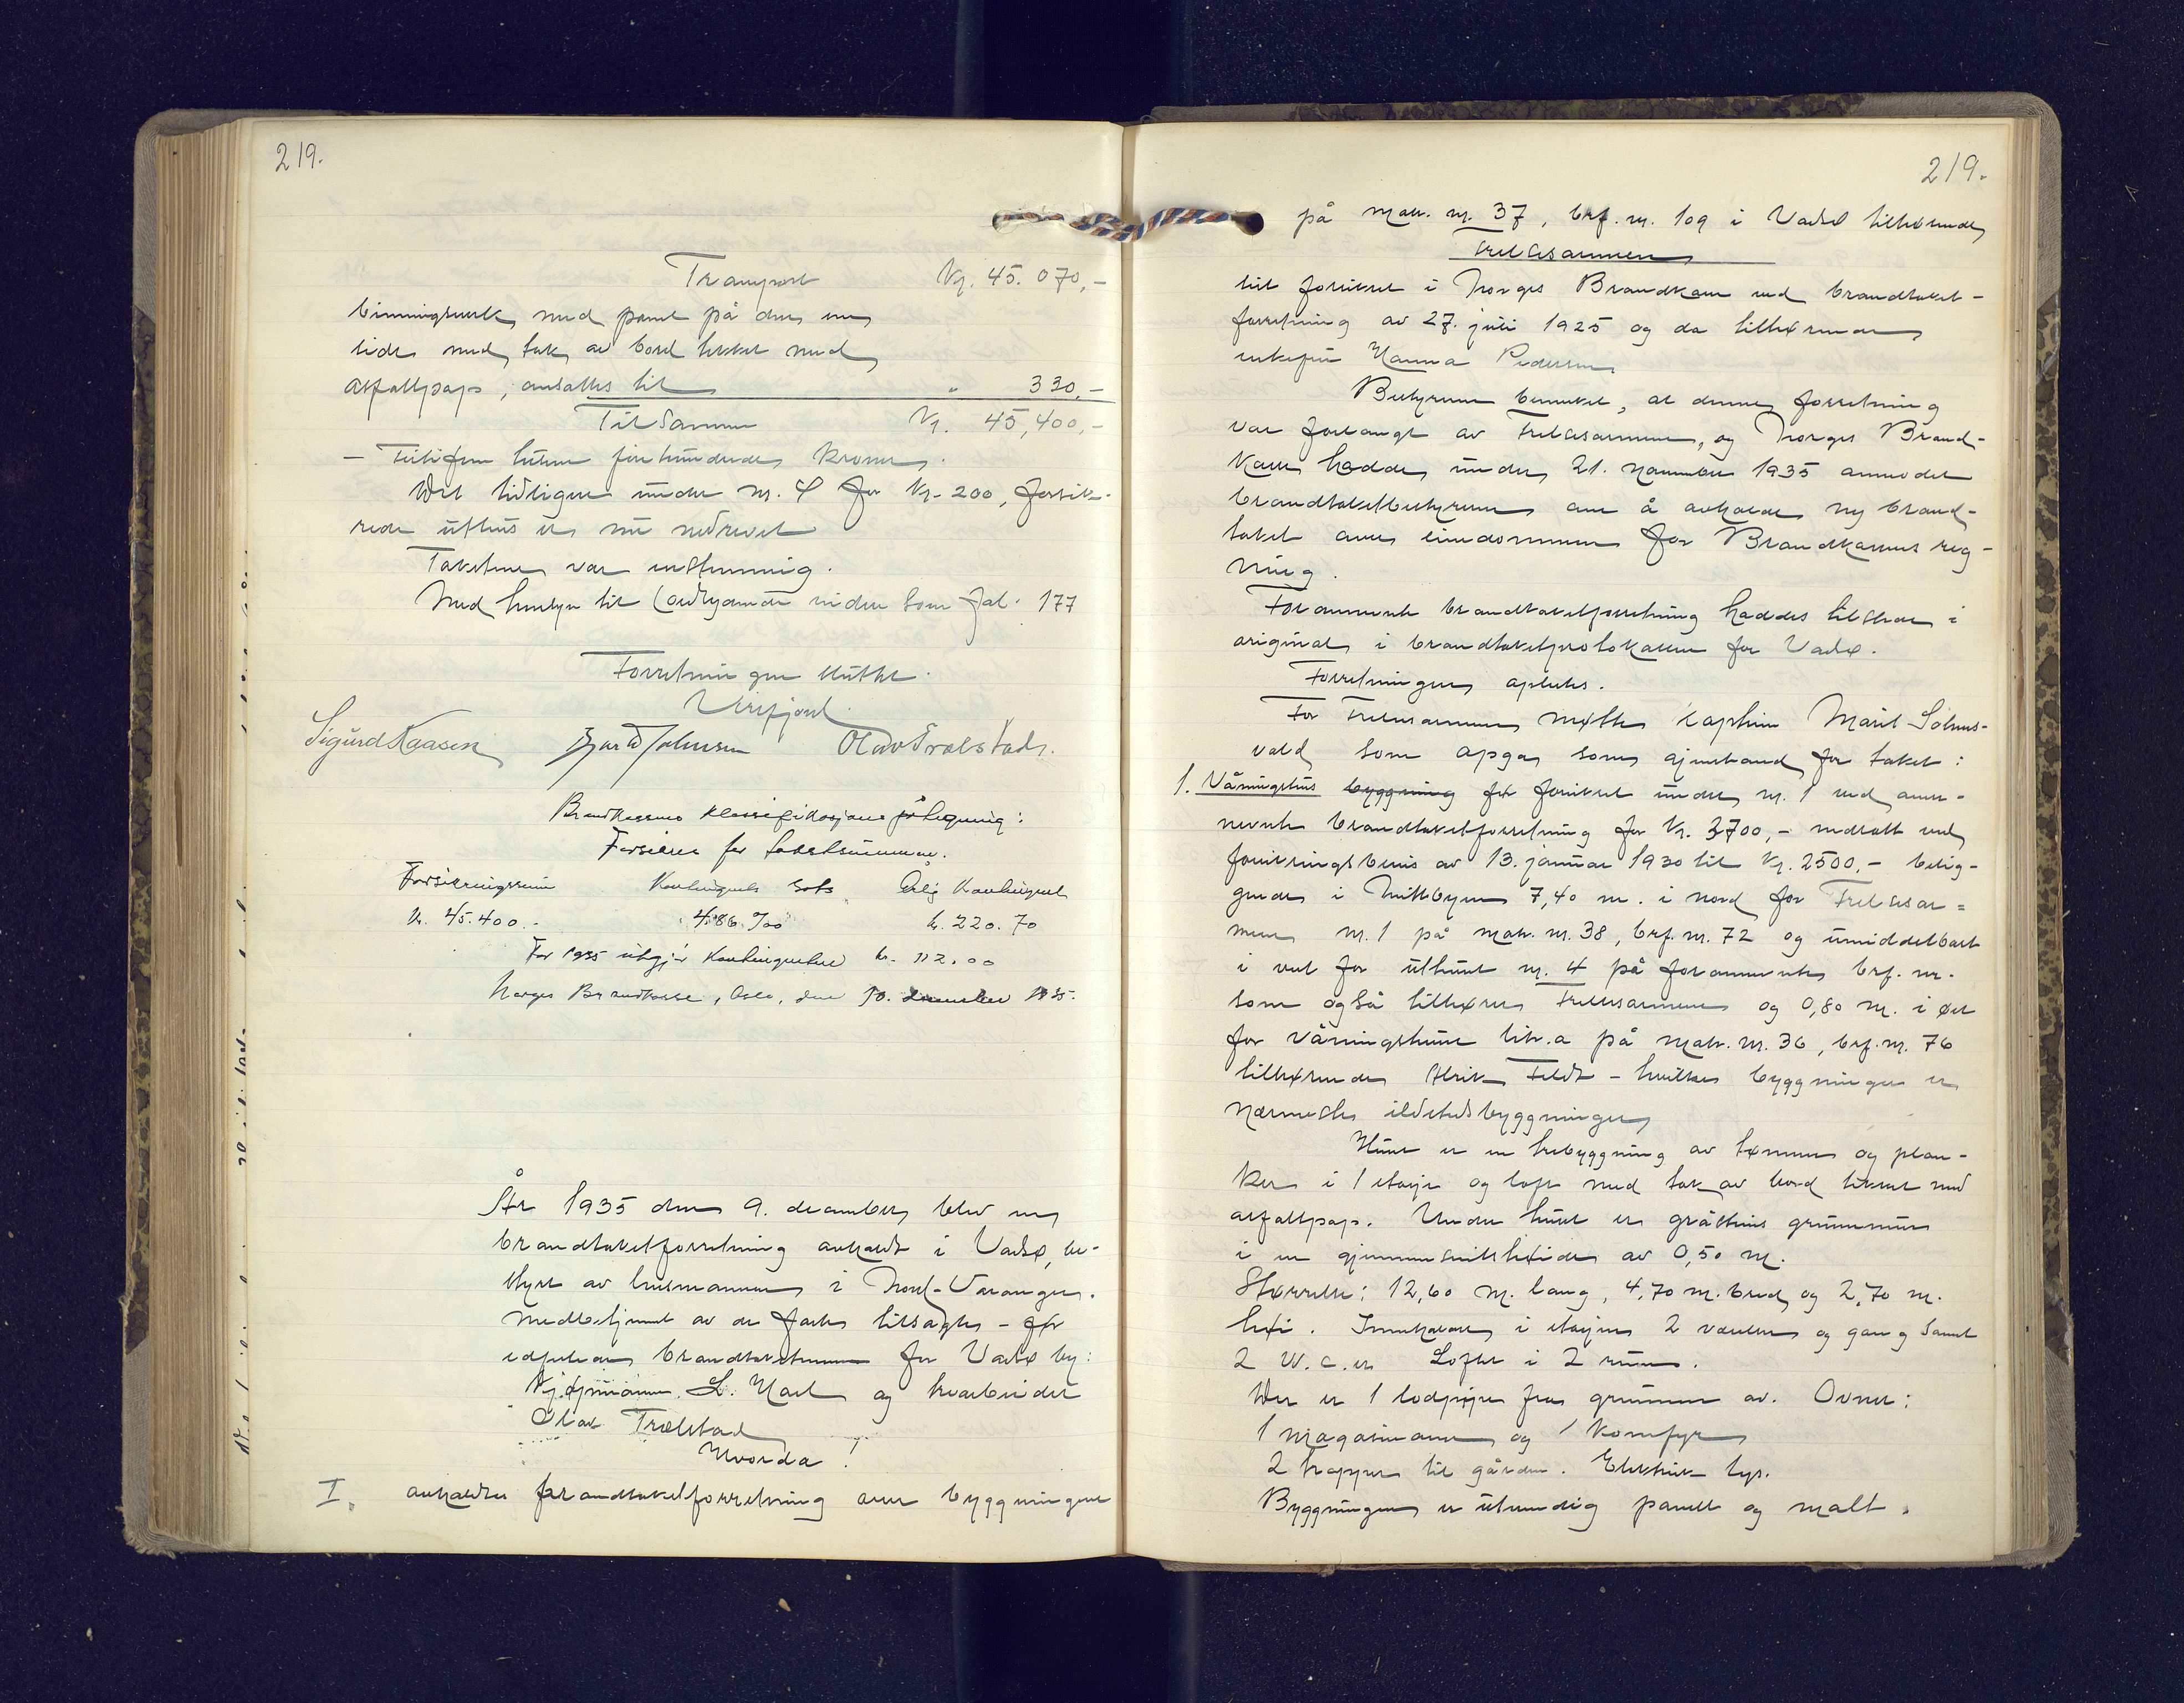 219.
Transport Kr. 45.070,-
binningsverk med panel på den ene
side med tak av bord tekket med
asfaltpapp, ansattes til " 330,-
Tilsammen Kr. 45,400,-
- Førtifem tusen firehundrede kroner.
Det tidligere under nr. 4 for Kr. 200, forsik-
rede uthus er nu nedrevet
Taksten var enstemmig.
Med hensyn til lovlydende viden som fol. 177
Forretningen sluttet.
Verifjord.
Sigurd Kaasen Olav Trælstad.
Brandkassens klassifikasjons påtegning:
Forsikres for takstsummen.
Forsikringssum Kontingents sats Årlig kontingent
Kr. 45.400.- 4.86 ‰ kr. 220.70
For 1935 utgjør kontingenten kr. 112.00
Norges Brandkasse, Oslo, den 30. desember 1935.
År 1935 den 9. december blev en
brandtakstforretning avholdt i Vadsø, be-
styrt av lensmannen i Nord-Varanger.
medbetjent av de faste tilsagte - før
edfestede brandtakstmenn for Vadsø by:
Kjøpmann L. Hart og trearbeider
Olav Trælstad
Hvorda!
I. avholdtes brandtakstforretning over bygningene
219.
på matr. nr. 37, brf. nr. 109 i Vadsø tilhørende
Frelsesarmeen
til forsikret i Norges Brandkasse ved brandtakst-
forretning av 27. juli 1925 og da tilhørende
enkefru Hanna Pedersen
Bestyreren bemerket, at denne forretning
var forlangt av Frelsesarmeen, og Norges Brand-
kasse hadde under 21. november 1935 anmodet
brandtakstbestyreren om å avholde ny brand-
takst over eiendommen for Brandkassens reg-
ning.
Forannevnte brandtakstforretning haddes tilstede i
original i brandtakstprotokollen for Vadsø.
Forretningen oplestes.
For Frelsesarmeen møtte kaptein Marit Solnes-
vold som opga som gjenstand for takst:
1. Våningshus byggning før forsikret under nr. 1 ved oven-
nevnte brandtakstforretning for Kr. 3700,- nedsatt ved
forsikringsbevis av 13. januar 1930 til Kr. 2500,- belig-
gende i Midtbyen 7,40 m. i nord for Frelsesar=
meen nr. 1 på matr. nr. 38, brf. nr. 72 og umiddelbart
i vest for uthuset nr. 4 på forannevnte brf. nr.
som også tilhører Frelsesarmeen og 0,80 m. i øst
for våningshuset litr. a på matr. nr. 36, brf. nr. 76
tilhørende Ulrik Feldt - hvilke byggninger er
nærmeste ildstedsbyggninger
Huset er en trebyggning av tømmer og plan-
ker i 1 etasje og loft med tak av bord tekket med
asfaltpapp. Under huset er gråstens grunnmur
i en gjennemsnittshøide av 0,50 m.
Størrelse: 12,60 m. lang, 4,70 m. bred og 2,70 m.
høi. Inneholder i etasjen 2 værelser og gang samt
2 W.c.er Loftet i 2 rum.
Der er 1 lodpipe fra grunnen av. Ovner:
1 magasinovn og 1 komfyr
2 trapper til gården. Elektrisk lys.
Byggningen er utvendig panelt og malt.